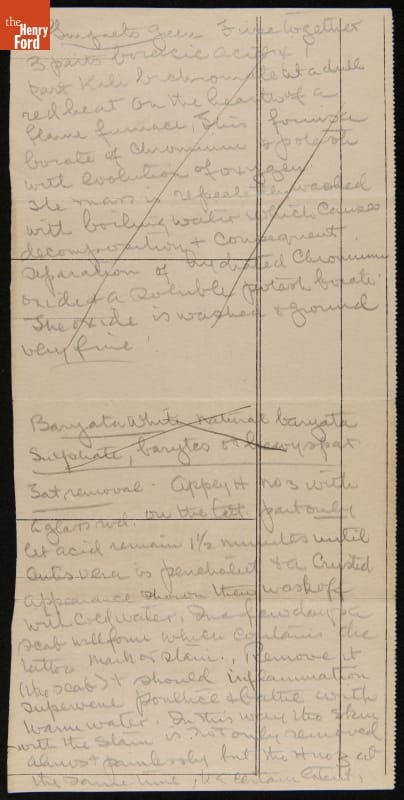 the
Henry
Ford
Guignets green Fuse together
3 parts boracic acid & 1
part Kali bichromate at a dull
red heat on the hearth of a
flame furnace, This forms a
borate of chromium & potash
with evolution of oxygen
The mass is repeatedly washed
with boiling water which causes
decomposition & consequent
separation of hydrated chromium
oxide & a soluble potash borate
The oxide is washed & ground
very fine
Baryata White natural baryata
Sulphate, barytes or heavy spar
Tat removal - appey H no3 with
a glass rod. on the tatt part only
let acid remain 1½ minutes until
cutis vera is penetrated & a crusted
appearance shown then wash off
with cold water, In a few days a
scab will form which contains the
tattoo mark or stain. Remove it
(the scab) & should inflammation
supervene poultice & bathe with
warm water. In this way the skin
with the stain is not only removed
almost painlessly but the H no3 at
the same time, to a certain extent,